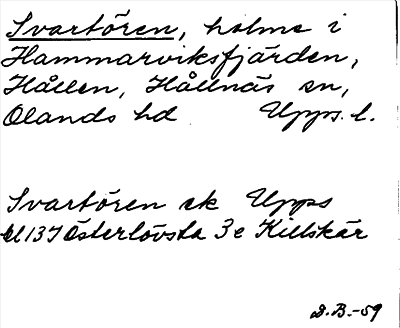 Svartören, holme i
Hammarviksfjärden,
Hållen, Hållnäs sn,
Olands hd Upps. l.
Svartören ek Upps
bl 137 Österlövsta 3e Killskär
D.B.-59